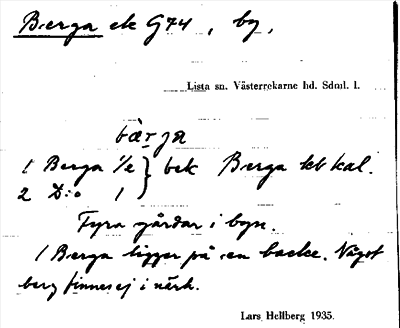 Berga ek G74, by,
Lista sn. Västerrekarne hd. Sdml. l.
bärja
1 Berga 1/2 } bek Berga kbkal.
2 D:o 1
Fyra gårdar i byn.
1 Berga ligger på en backe. Något
berg finnes ej i närh.
Lars Hellberg 1935.